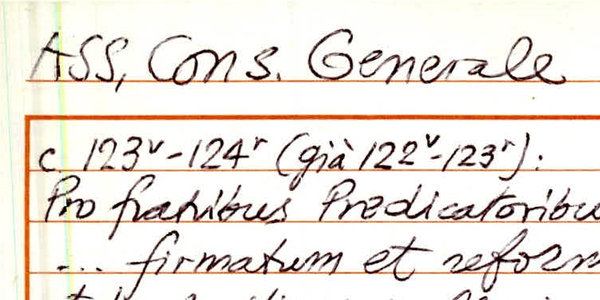 ASS, Cons. Generale
c. 123v-124r (già 122v-123r):
Pro fratribus Predicatoribu
... firmatum et reform